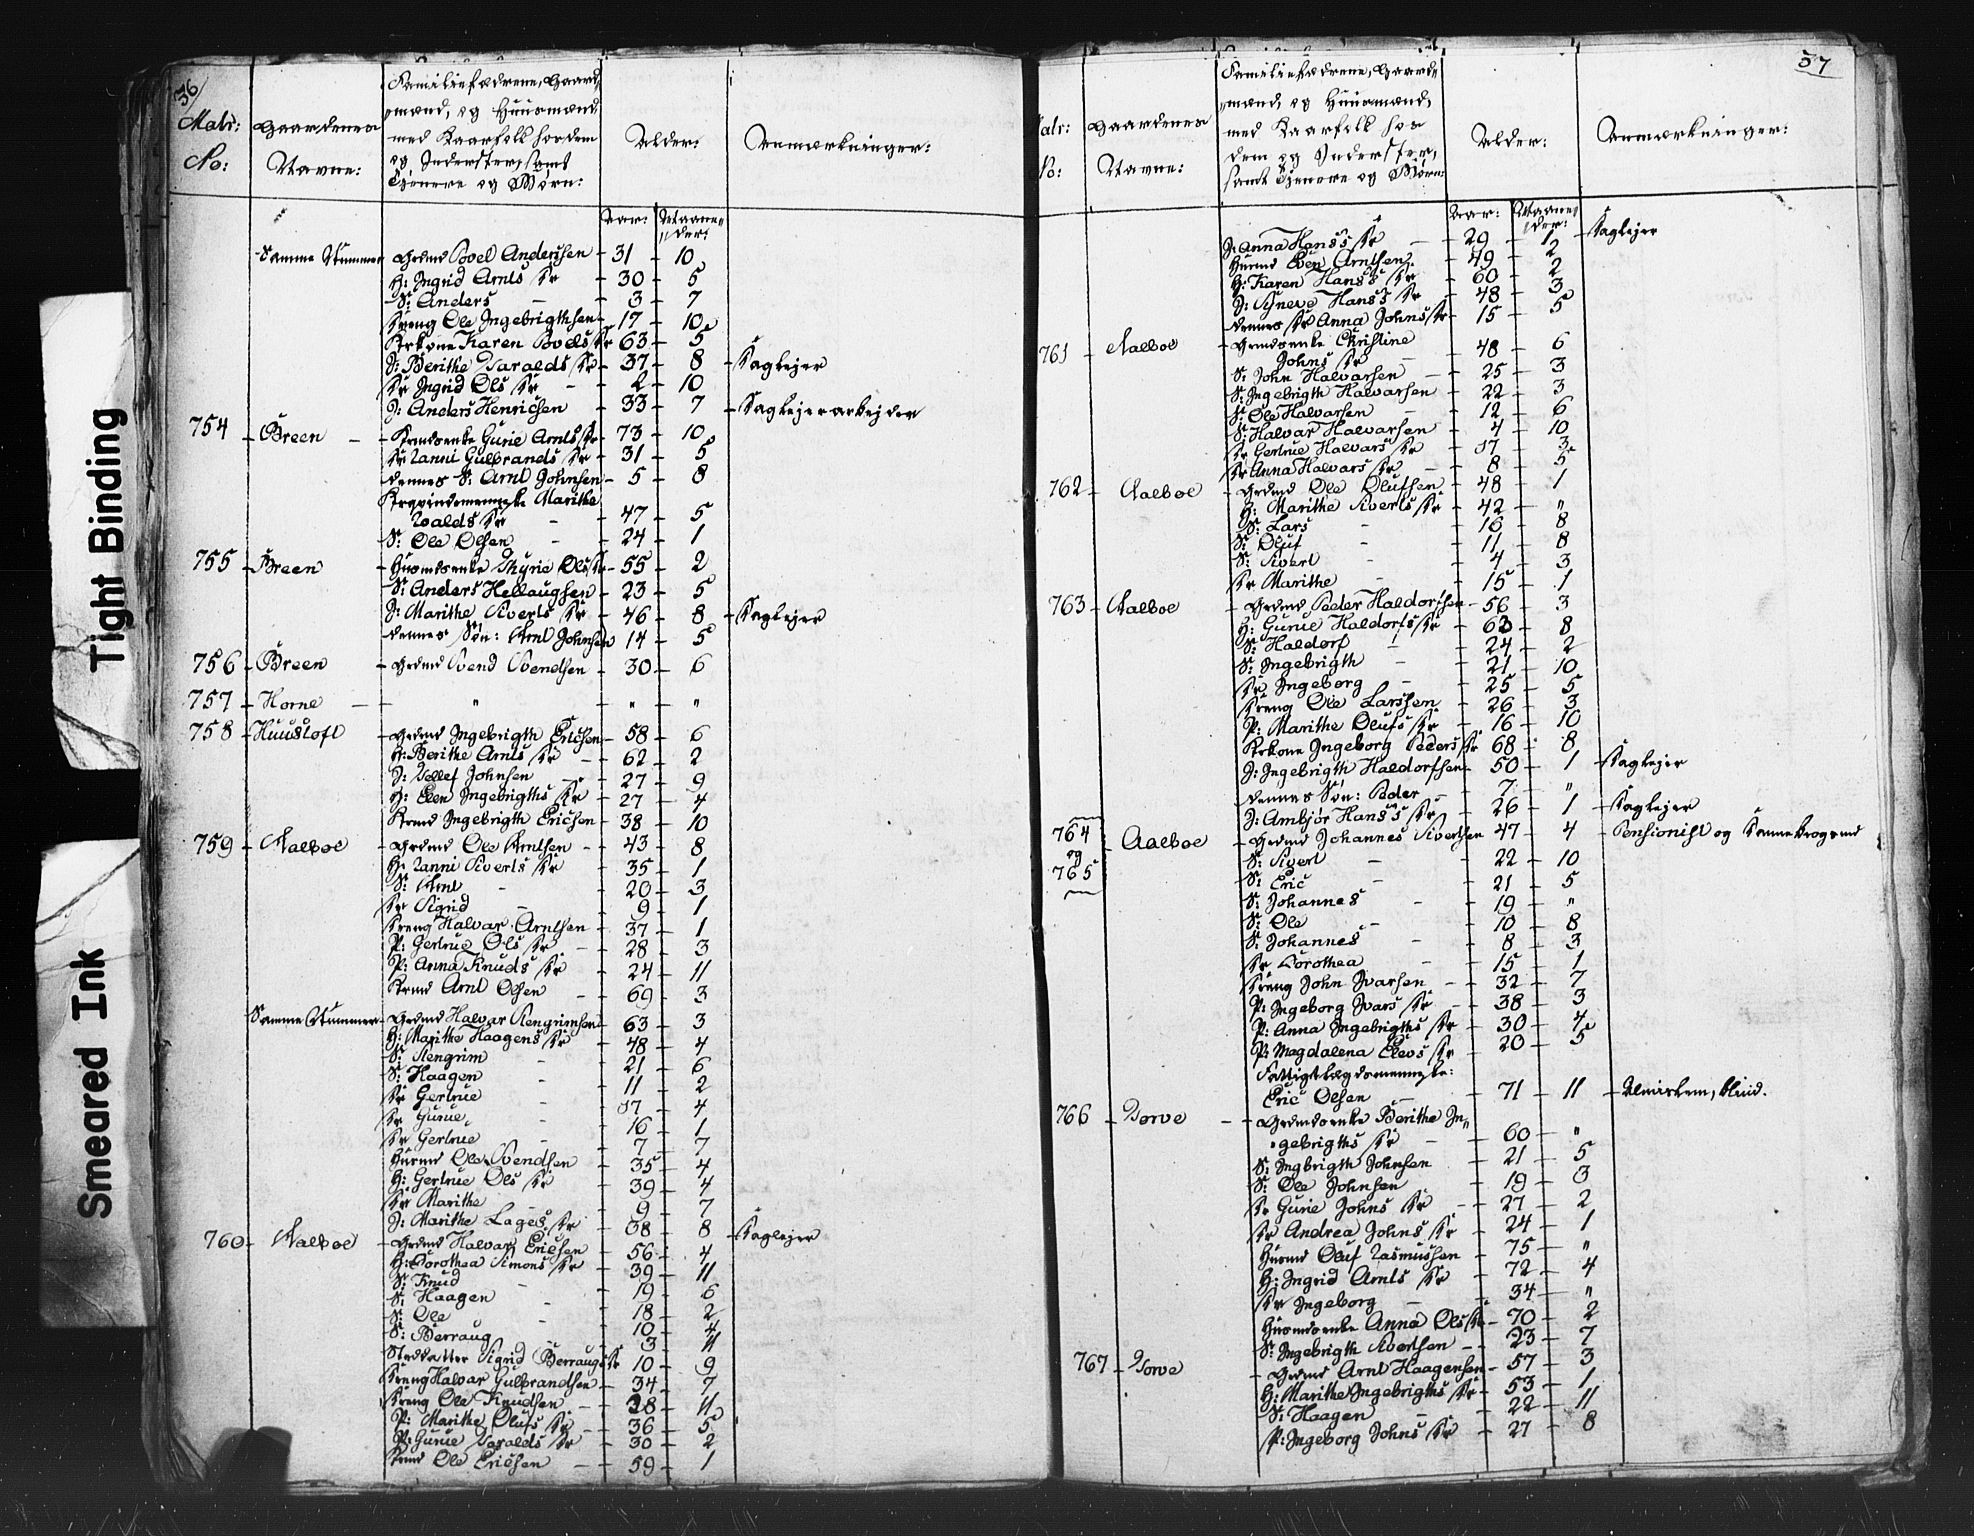 Tight Binding
Smeared Ink
36
Matr: No:
Gaardenes Navne:
Familiefædrene, Gaard-
mænd, og Huusmænd
med Kaarfolk hos dem
og Inderster, samt
Tjenere og Børn:
Alder:
Anmærkninger:
Aar: Maane-
der:
Samme Nummer Grdmd Povel Anderssen 31 10
H: Ingrid Arnts Dr 30 5
S: Anders 3 7
Dreng Ole Ingebrigthsen 17 10
Krkone Karen Povels Dr 63 5
I: Berithe Haralds Dr 37 8 Dagleier
Dr Ingrid Ols Dr 2 10
I: Anders Henricsen 33 7 Dagleierarbejder
754 Breen Krmdsenke Gurie Arnts Dr 73 10
Dr Ranni Gulbrands Dr 31 5
dennes S: Arnt Johnsen 5 8
Marithe
Roalds Dr 47 5
S: Ole Olsen 24 1
755 Breen Husmdsenke Thyrie Ols Dr 55 2
S: Anders Hellaugsen 23 5
I: Marithe Siverts Dr 46 8 Dagleier
dennes Søn: Arnt Johnsen 14 5
756 Breen Grdmd Svend Svendsen 30 6
757 Horne " " "
758 Huusloft Grdmd Ingebrigth Ericsen 58 6
H: Berithe Arnts Dr 62 2
I: Tollef Johnsen 27 9
H: Elen Ingebrigths Dr 27 4
Krmd Ingebrigth Ericsen 38 10
759 Aalboe Grdmd Ole Arntsen 43 8
H: Ranni Siverts Dr 35 1
S: Arnt 20 3
Dr Sigrid 9 1
Dreng Halvar Arntsen 37 1
P: Gertrue Ols Dr 28 3
P: Anna Knuds Dr 24 11
Krmd Arnt Olsen 69 3
Samme Nummer Grdmd Halvar Stengrimsen 63 3
H: Marithe Haagens Dr 48 4
S: Stengrim 21 6
S: Haagen 11 2
Dr Gertrue 37 4
Dr Gurue 16 1
Dr Gertrue 7 7
Husmd Ole Svendsen 35 4
H: Gertrue Ols Dr 39 4
Dr Marithe 9 7
I: Marithe Lages Dr 38 8 Dagleier
760 Aalboe Grdmd Halvar Ericsen 56 4
H: Dorothea Simons Dr 39 11
S: Knud 19 6
S: Haagen 18 2
S: Ole 10 4
S: Berraug 3 11
Steddatter Sigrid Berraugs Dr 10 9
Dreng Halvar Gulbrandsen 34 7
Dreng Ole Knudsen 28 11
P: Marithe Olufs Dr 36 5
P: Gurue Haralds Dr 30 2
Krmd Ole Ericsen 59 1
37
Matr: No:
Gaardenes Navne:
Familiefædrene, Gaard-
mænd, og Huusmænd,
med Kaarfolk hos
dem og Inderster,
samt Tjenere og Børn:
Alder:
Anmærkninger:
Aar: Maane-
der:
I: Anna Hans's Dr 29 1 Dagleier
Husmd Even Arntsen 49 2
H: Karen Hans's Dr 60 2
I: Synevé Hans's Dr 48 3
dennes Dr Anna Johns Dr 15 5
761 Aalboe Grdmdsenke Christine
Johns Dr 48 6
S: John Halvarsen 25 3
S: Ingebrigth Halvarsen 22 3
S: Ole Halvarsen 12 6
S: Halvar Halvarsen 4 10
Dr Gertrue Halvars Dr 37 3
Dr Anna Halvars Dr 8 5
762 Aalboe Grdmd Ole Olufsen 48 1
H: Marithe Siverts Dr 42 "
S: Lars 16 8
S: Oluf 11 8
S: Sivert 4 3
Dr Marithe 15 1
763 Aalboe Grdmd Peder Haldorsen 56 3
H: Gurue Haldors Dr 63 8
S: Haldorf 24 2
S: Ingebrigth 21 10
Dr Ingeborg 25 5
Dreng Ole Larssen 26 3
P: Marithe Olufs Dr 16 10
Krkone Ingeborg Peders Dr 68 8
I: Ingebrigth Haldorsen 50 1 Dagleier
dennes Søn: Peder 7 "
I: Ambjør Hans's Dr 26 1 Dagleier
764
og
765 Aalboe Grdmd Johannes Sivertsen 47 4 Pensionist og Dannebrogsmd
S: Sivert 22 10
S: Eric 21 5
S: Johannes 19 "
S: Ole 10 8
S: Johannes 8 3
Dr Dorothea 15 1
Dreng John Ivarsen 32 7
P: Ingeborg Ivars Dr 38 3
P: Anna Ingebrigths Dr 30 4
P: Magdalena Elevs Dr 20 5
Fattiglægdsmenneske:
Eric Olsen 71 11 Almislem, blind.
766 Torve Grdmdsenke Berithe In-
gebrigths Dr 60 "
S: Ingbrigth Johnsen 21 5
S: Ole Johnsen 19 3
Dr Gurie Johns Dr 27 2
Dr Andrea Johns Dr 24 1
Husmd Oluf Rasmussen 75 "
H: Ingrid Arnts Dr 72 4
Dr Ingeborg 34 "
Husmdsenke Anna Ols Dr 70 2
S: Ingebrigth Sivertsen 23 7
767 Torve Grdmd Arnt Haagensen 57 3
H: Marithe Ingebrigths Dr 53 1
S: Haagen 22 11
P: Ingeborg Johns Dr 27 8